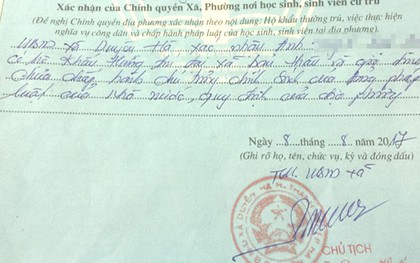 Xác nhận của Chính quyền Xã, Phường nơi học sinh, sinh viên cư trú
(Đề nghị Chính quyền địa phương xác nhận theo nội dung: Hộ khẩu thường trú, việc thực hiện
nghĩa vụ công dân và chấp hành pháp luật của học sinh, sinh viên tại địa phương).
UBND xã Duyên Hà, xác nhận
có hộ khẩu thường trú tại xã bản thân và gia đình
chưa chấp hành chủ trương chính sách của Đảng pháp
luật của Nhà nước, quy định của địa phương
Ngày 8 tháng 8 năm 2017
(Ghi rõ họ, tên, chức vụ, ký và đóng dấu)
TM. UBND xã
CHỦ TỊCH